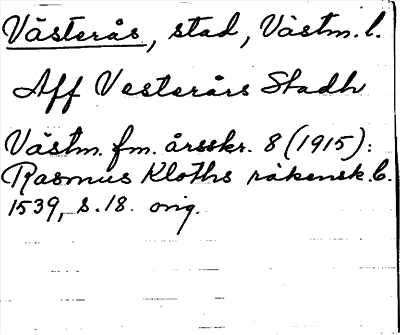 Västerås, stad, Västm. l.
Aff Vesterårs Stadh
Västm. fm. årsskr. 8 (1915):
Rasmus Kloths räkensk.b.
1539, s. 18. orig.